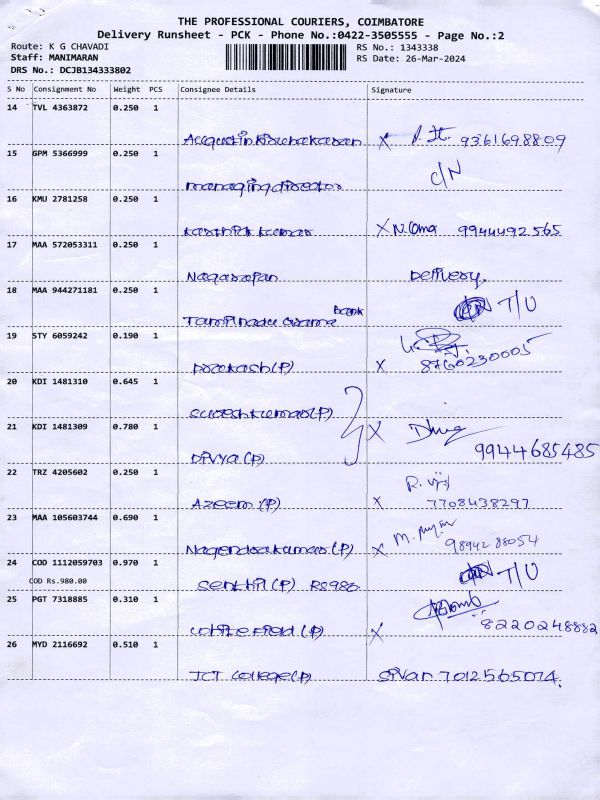 THE PROFESSIONAL COURIERS, COIMBATORE
Delivery Runsheet - PCK - Phone No.:0422-3505555 - Page No.:2
Route: K G CHAVADI RS No.: 1343338
Staff: MANIMARAN RS Date: 26-Mar-2024
DRS No.: DCJB134333802
S No Consignment No Weight PCS Consignee Details Signature
14 TVL 4363872 0.250 1
9361698809
15 GPM 5366999 0.250 1
managing director C/N
16 KMU 2781258 0.250 1
Karthik kumar X N. Oma 9944492565
17 MAA 572053311 0.250 1
Nagarajan Delivery.
18 MAA 944271181 0.250 1
bank
Tamilnadu Grama T/U
19 STY 6059242 0.190 1
Prakash (P) X 8760230005
20 KDI 1481310 0.645 1
Sureshkumar (P)
21 KDI 1481309 0.780 1
X
Divya (P) 9944685485
22 TRZ 4205602 0.250 1
Azeem (P) X 7708438297
23 MAA 105603744 0.690 1
Nagendrakumar (P) X 9894288054
24 COD 1112059703 0.970 1
COD Rs.980.00
Senthil (P) Rs 980 T/U
25 PGT 7318885 0.310 1
(P) X 8220248882
26 MYD 2116692 0.510 1
JCT College (P) Sivan 7012565074.